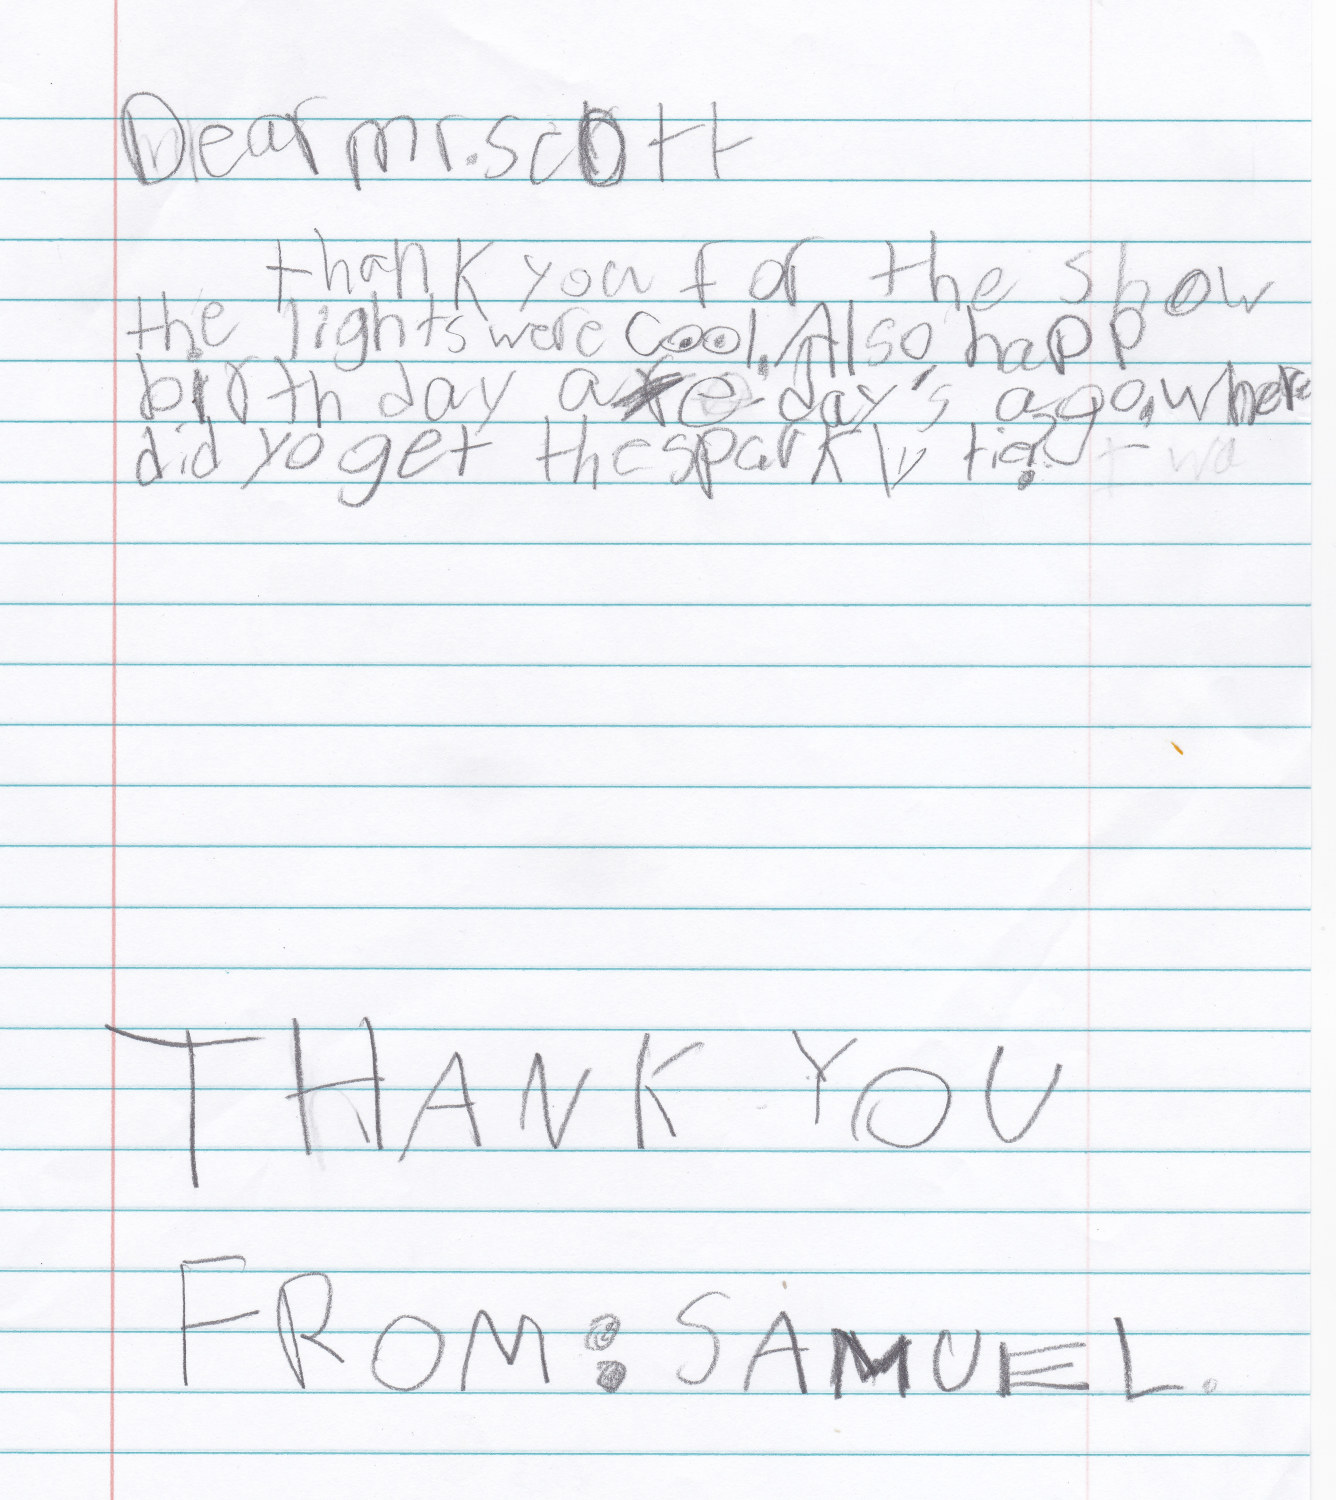 Dear mr. scott
thank you for the show
the lights were cool. Also happ
birth day a fe day's ago, where
did yo get the sparkly tie?
THANK YOU
FROM: SAMUEL.